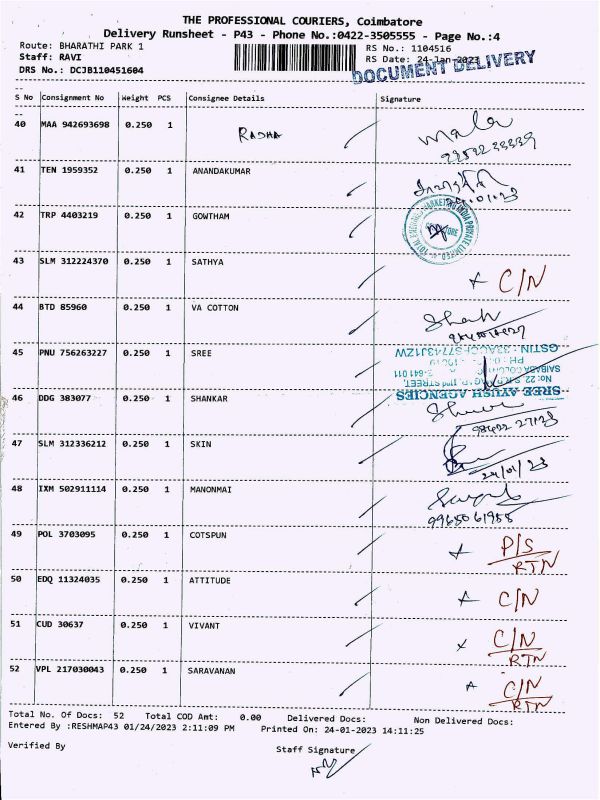 THE PROFESSIONAL COURIERS, Coimbatore
Delivery Runsheet - P43 - Phone No.:0422-3505555 - Page No.:4
Route: BHARATHI PARK 1 RS No.: 1104516
Staff: RAVI RS Date: 24-Jan-2023
DRS No.: DCJB110451604 DOCUMENT DELIVERY
S No Consignment No Weight PCS Consignee Details Signature
40 MAA 942693698 0.250 1 RADHA Mala
41 TEN 1959352 0.250 1 ANANDAKUMAR
42 TRP 4403219 0.250 1 GOWTHAM
43 SLM 312224370 0.250 1 SATHYA x C/N
44 BTD 85960 0.250 1 VA COTTON
45 PNU 756263227 0.250 1 SREE
SREE AYUSH AGENCIES
46 DDG 383077 0.250 1 SHANKAR
47 SLM 312336212 0.250 1 SKIN 24/01/23
48 IXM 502911114 0.250 1 MANONMAI
9965061958
49 POL 3703095 0.250 1 COTSPUN x P/S
RTN
50 EDQ 11324035 0.250 1 ATTITUDE x C/N
51 CUD 30637 0.250 1 VIVANT x C/N
RTN
52 VPL 217030043 0.250 1 SARAVANAN x C/N
RTN
Total No. Of Docs: 52 Total COD Amt: 0.00 Delivered Docs: Non Delivered Docs:
Entered By :RESHMAP43 01/24/2023 2:11:09 PM Printed On: 24-01-2023 14:11:25
Verified By Staff Signature